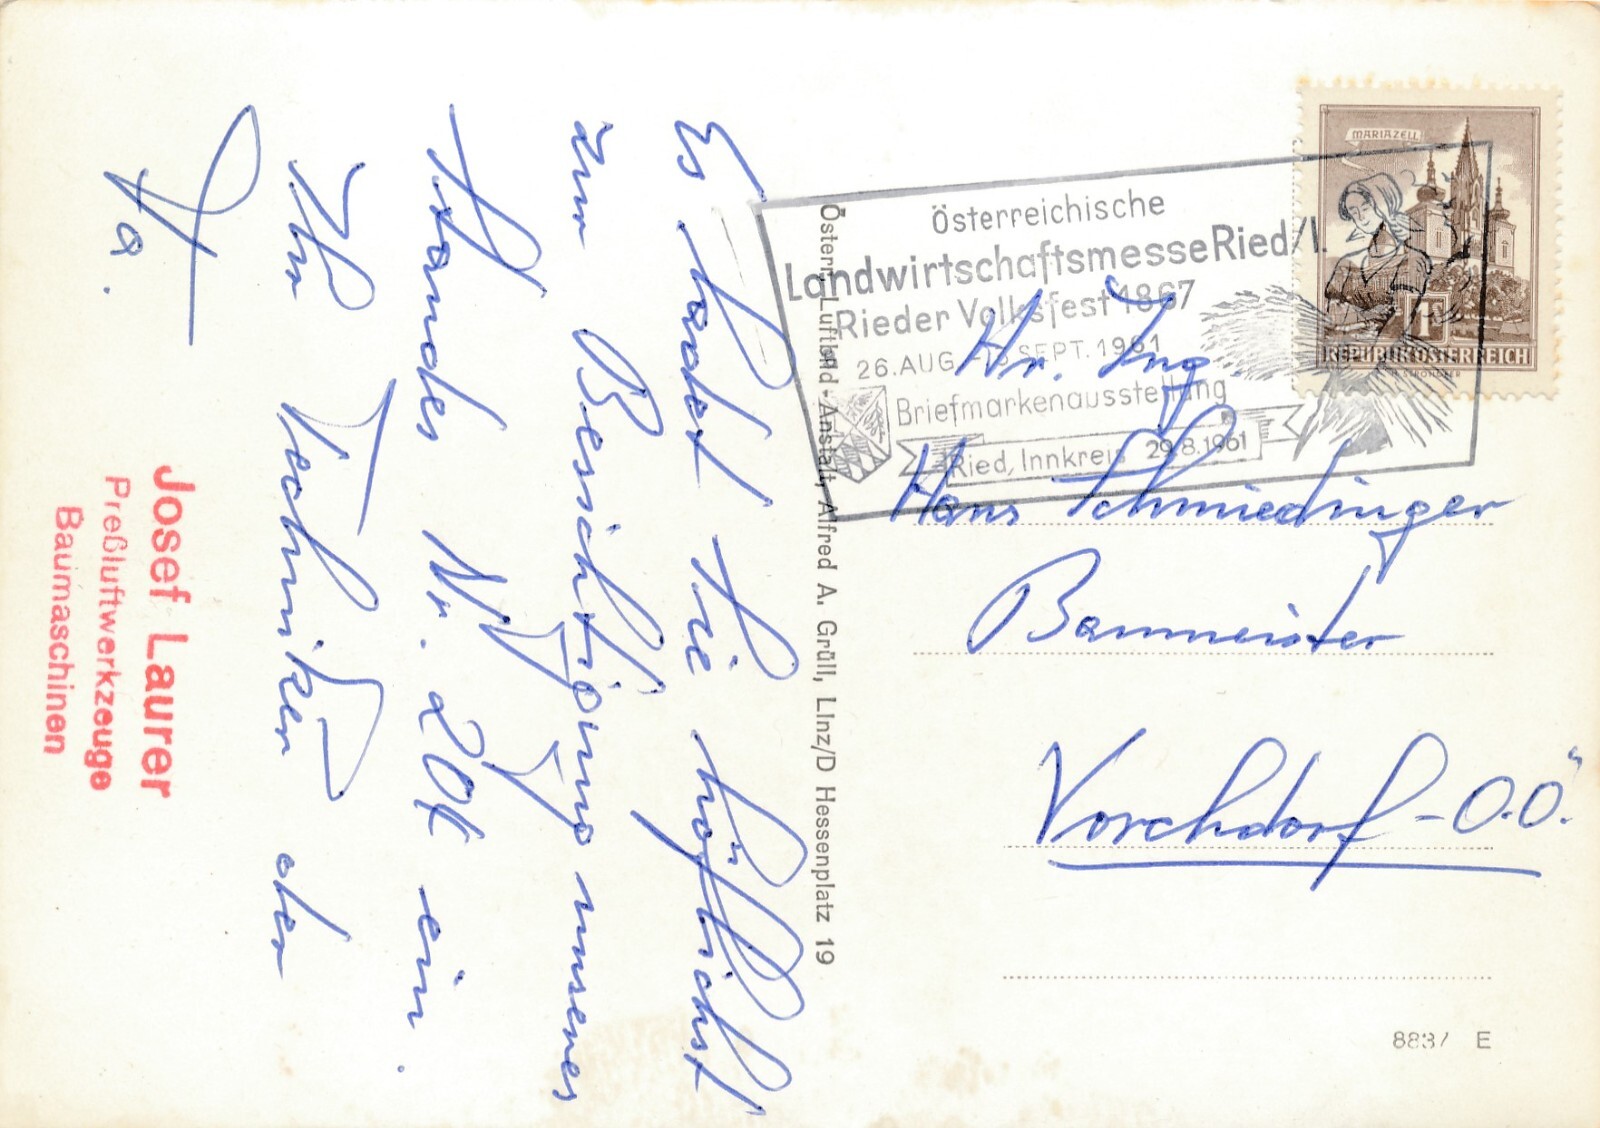 Es ladet Sie höflichst
zur Besichtigung unseres
Standes Nr. 204 ein.
Ihr Techniker der
Fa.
Josef Laurer
Preßluftwerkzeuge
Baumaschinen
Österr. Luftbild-Anstalt, Alfred A. Grüll, Linz/D Hessenplatz 19
MARIAZELL
1
REPUBLIK ÖSTERREICH
Österreichische
Landwirtschaftsmesse Ried/I.
Rieder Volksfest 1867
26. AUG. SEPT. 1961
Briefmarkenausstellung
Ried, Innkreis 29.8.1961
Hr. Ing.
Hans Schmiedinger
Baumeister
Vorchdorf - O.Ö.
8837 E